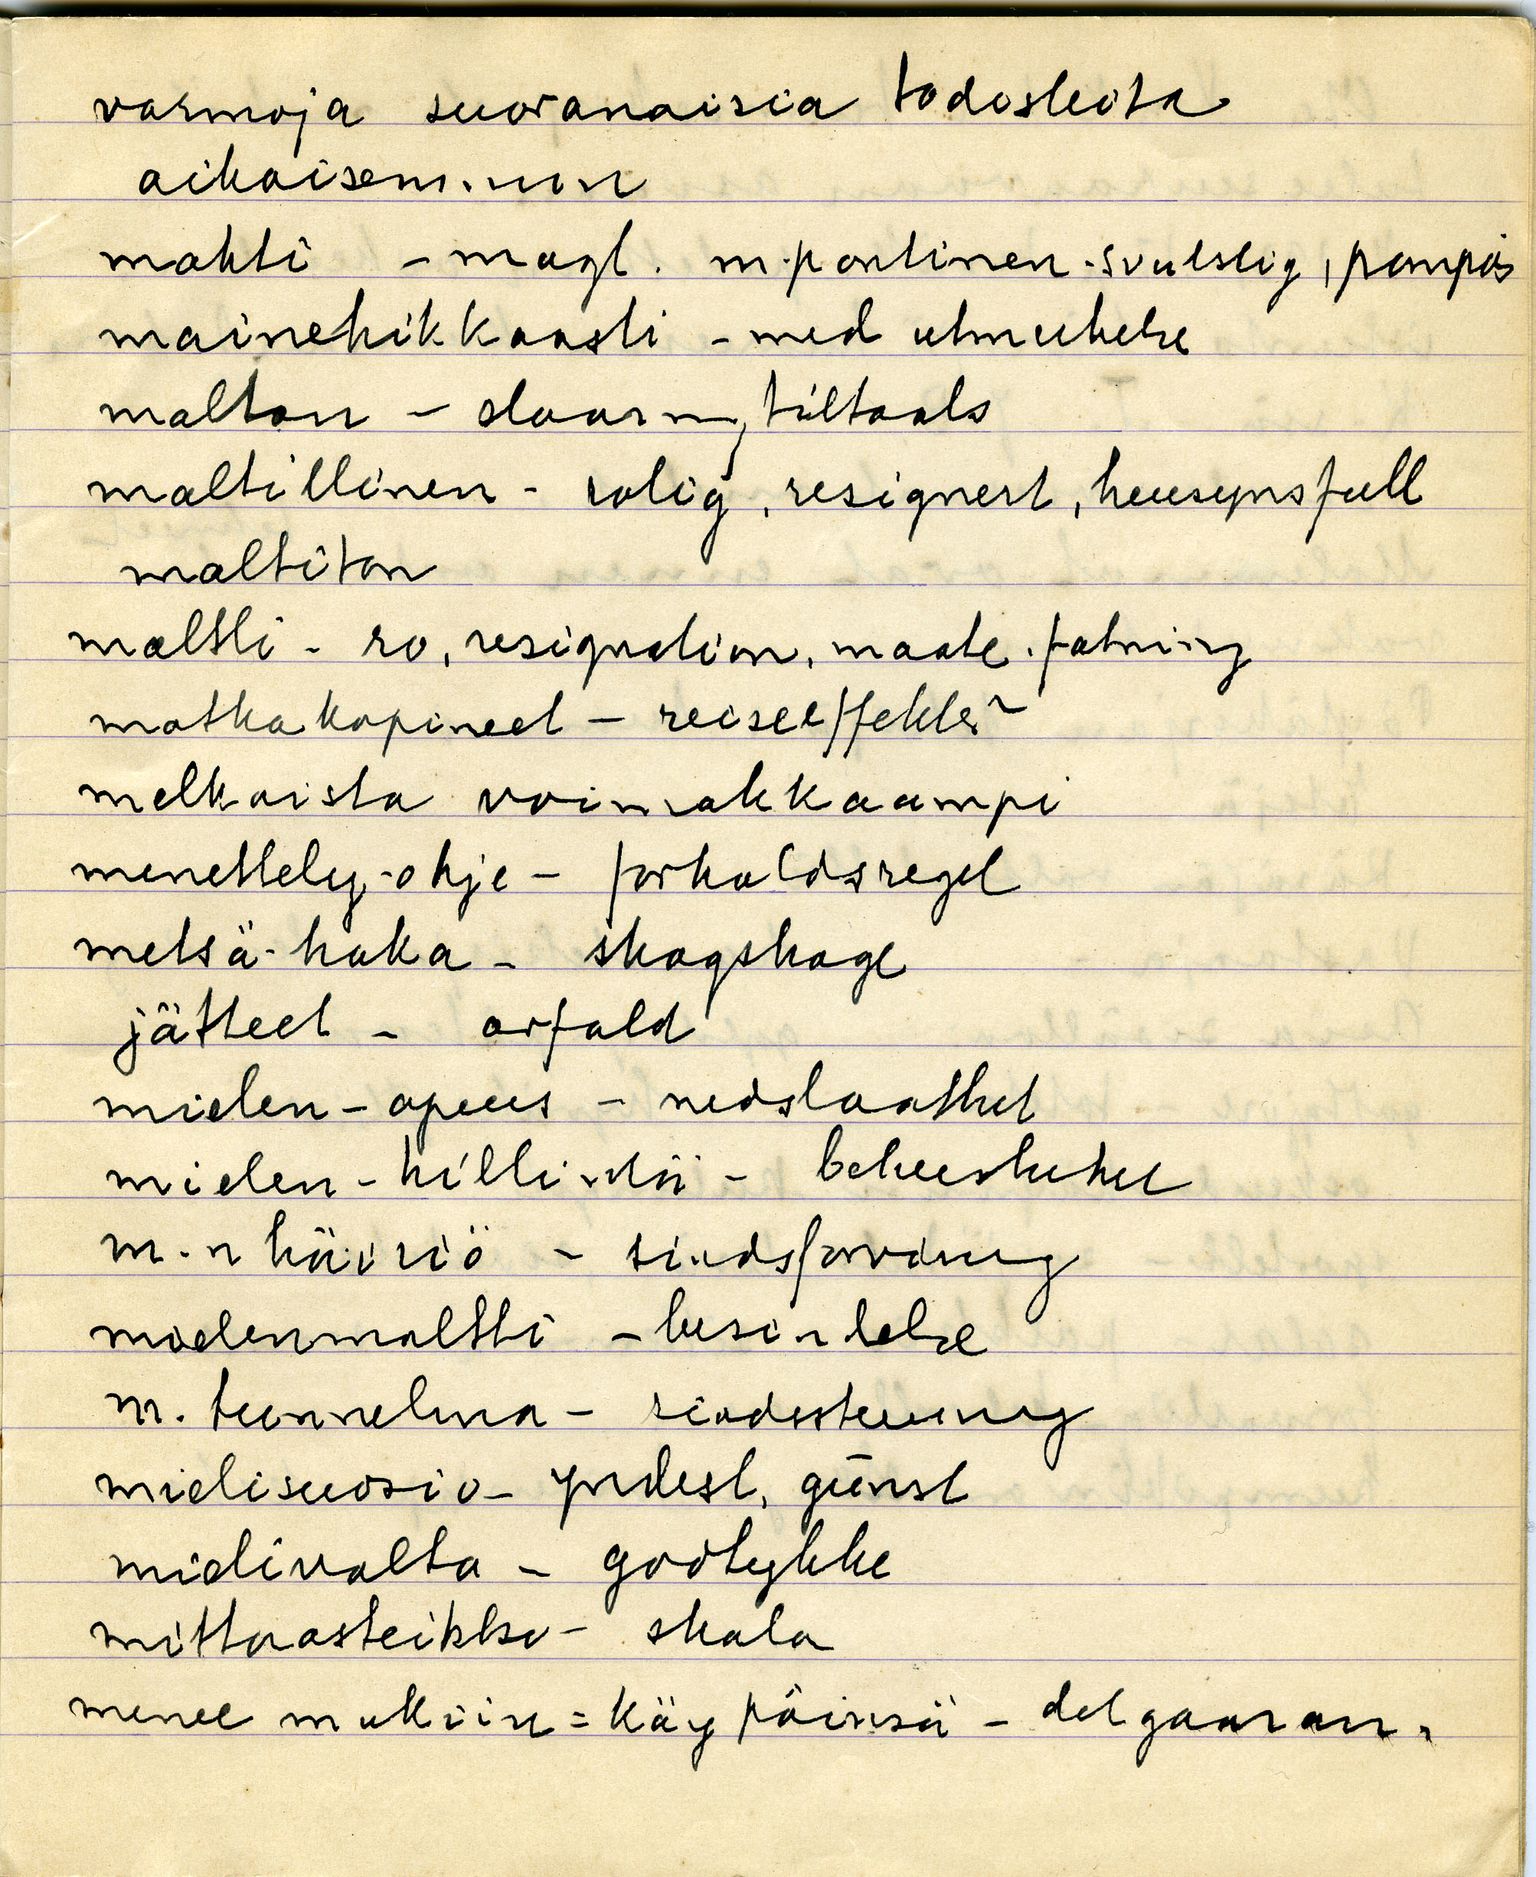 varmoja suoranaisia todisteita
aikaisemmin
mahti - magt. m.pontinen - svulstig, pompøs
mainehikkaasti - med utmerkelse
maltan - taals
maltillinen - rolig, resignert, hensynsfull
maltiton
maltti - ro, resignation, maate. fatning
matkakapineet - reiseeffekter
melkoista voimakkaampi
menettely-ohje - forholdsregel
metsä-haka - skogshage
jätteet - avfald
mielen-apeus - nedslaathet
mielen-hillintä - beherskelse
m.n häiriö - sindsforvirring
mielenmaltti - besindelse
m. tunnelma - sindsstemning
mielisuosio - yndest, gunst
mielivalta - godtykke
mittaasteikko - skala
menee mukiin = käy päinsä - det gaar an.